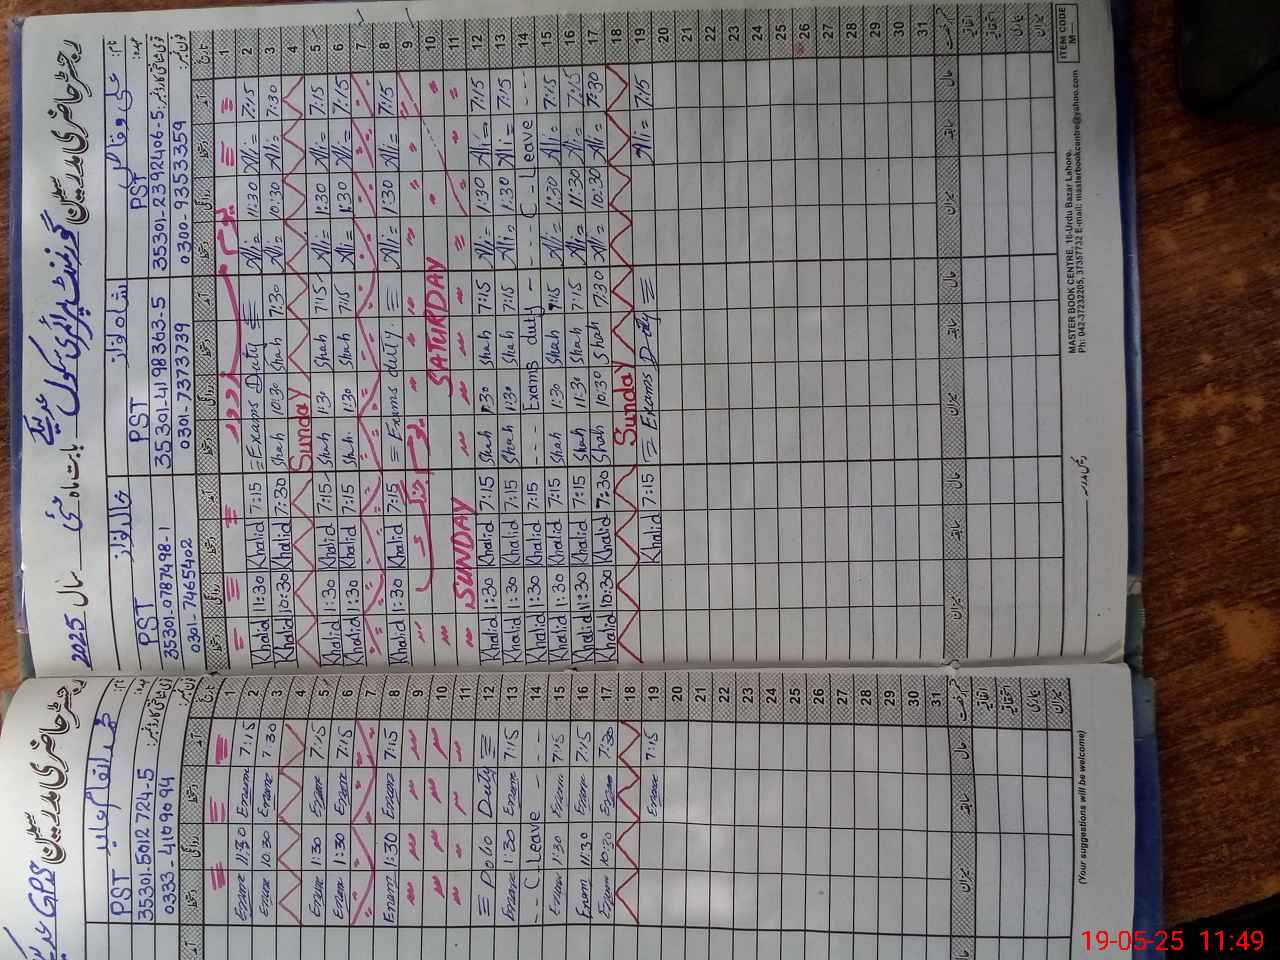 رجسٹر حاضری مدرسین گورنمنٹ پرائمری سکول بابت ماہ مئی سال 2025
نام: علی وقاص شاہ نواز خالد نواز
عہدہ: PST PST PST
شناختی کارڈ نمبر: 35301-2392406-5 35301-4198363-5 35301-0787498-1
فون نمبر: 0300-9353359 0301-7373739 0301-7465402
تاریخ آمد دستخط روانگی دستخط آمد دستخط روانگی دستخط آمد دستخط روانگی دستخط
1
2 7:15 Ali 11:30 Ali = Exams Duty = 7:15 Khalid 11:30 Khalid
3 7:30 Ali 10:30 Ali 7:30 Shah 10:30 Shah 7:30 Khalid 10:30 Khalid
4 Sunday
5 7:15 Ali 1:30 Ali 7:15 Shah 1:30 Shah 7:15 Khalid 1:30 Khalid
6 7:15 Ali 1:30 Ali 7:15 Shah 1:30 Shah 7:15 Khalid 1:30 Khalid
7
8 7:15 Ali 1:30 Ali = Exams duty = 7:15 Khalid 1:30 Khalid
9
10 SATURDAY
11 SUNDAY
12 7:15 Ali 1:30 Ali 7:15 Shah 1:30 Shah 7:15 Khalid 1:30 Khalid
13 7:15 Ali 1:30 Ali 7:15 Shah 1:30 Shah 7:15 Khalid 1:30 Khalid
14 --- C-Leave --- Exams duty --- 7:15 Khalid 1:30 Khalid
15 7:15 Ali 1:30 Ali 7:15 Shah 1:30 Shah 7:15 Khalid 1:30 Khalid
16 7:15 Ali 11:30 Ali 7:15 Shah 11:30 Shah 7:15 Khalid 11:30 Khalid
17 7:30 Ali 10:30 Ali 7:30 Shah 10:30 Shah 7:30 Khalid 10:30 Khalid
18 Sunday
19 7:15 Ali = Exams Duty = 7:15 Khalid
20
21
22
23
24
25
26
27
28
29
30
31
ITEM CODE
M—
MASTER BOOK CENTRE, 16-Urdu Bazar Lahore.
Ph: 042-37232205, 37357732 E-mail: masterbookcentre@yahoo.com
رجسٹر حاضری مدرسین GPS
نام:
عہدہ: PST
شناختی کارڈ نمبر: 35301-5012724-5
فون نمبر: 0333-4109094
تاریخ آمد دستخط روانگی دستخط آمد
1
2 7:15 Enam 11:30 Enam
3 7:30 Enam 10:30 Enam
4
5 7:15 Enam 1:30 Enam
6 7:15 Enam 1:30 Enam
7
8 7:15 Enam 1:30 Enam
9
10
11
12 = Polio Duty =
13 7:15 Enam 1:30 Enam
14 --- C-Leave ---
15 7:15 Enam 1:30 Enam
16 7:15 Enam 11:30 Enam
17 7:30 Enam 10:30 Enam
18
19 7:15 Enam
20
21
22
23
24
25
26
27
28
29
30
31
(Your suggestions will be welcome)
19-05-25 11:49